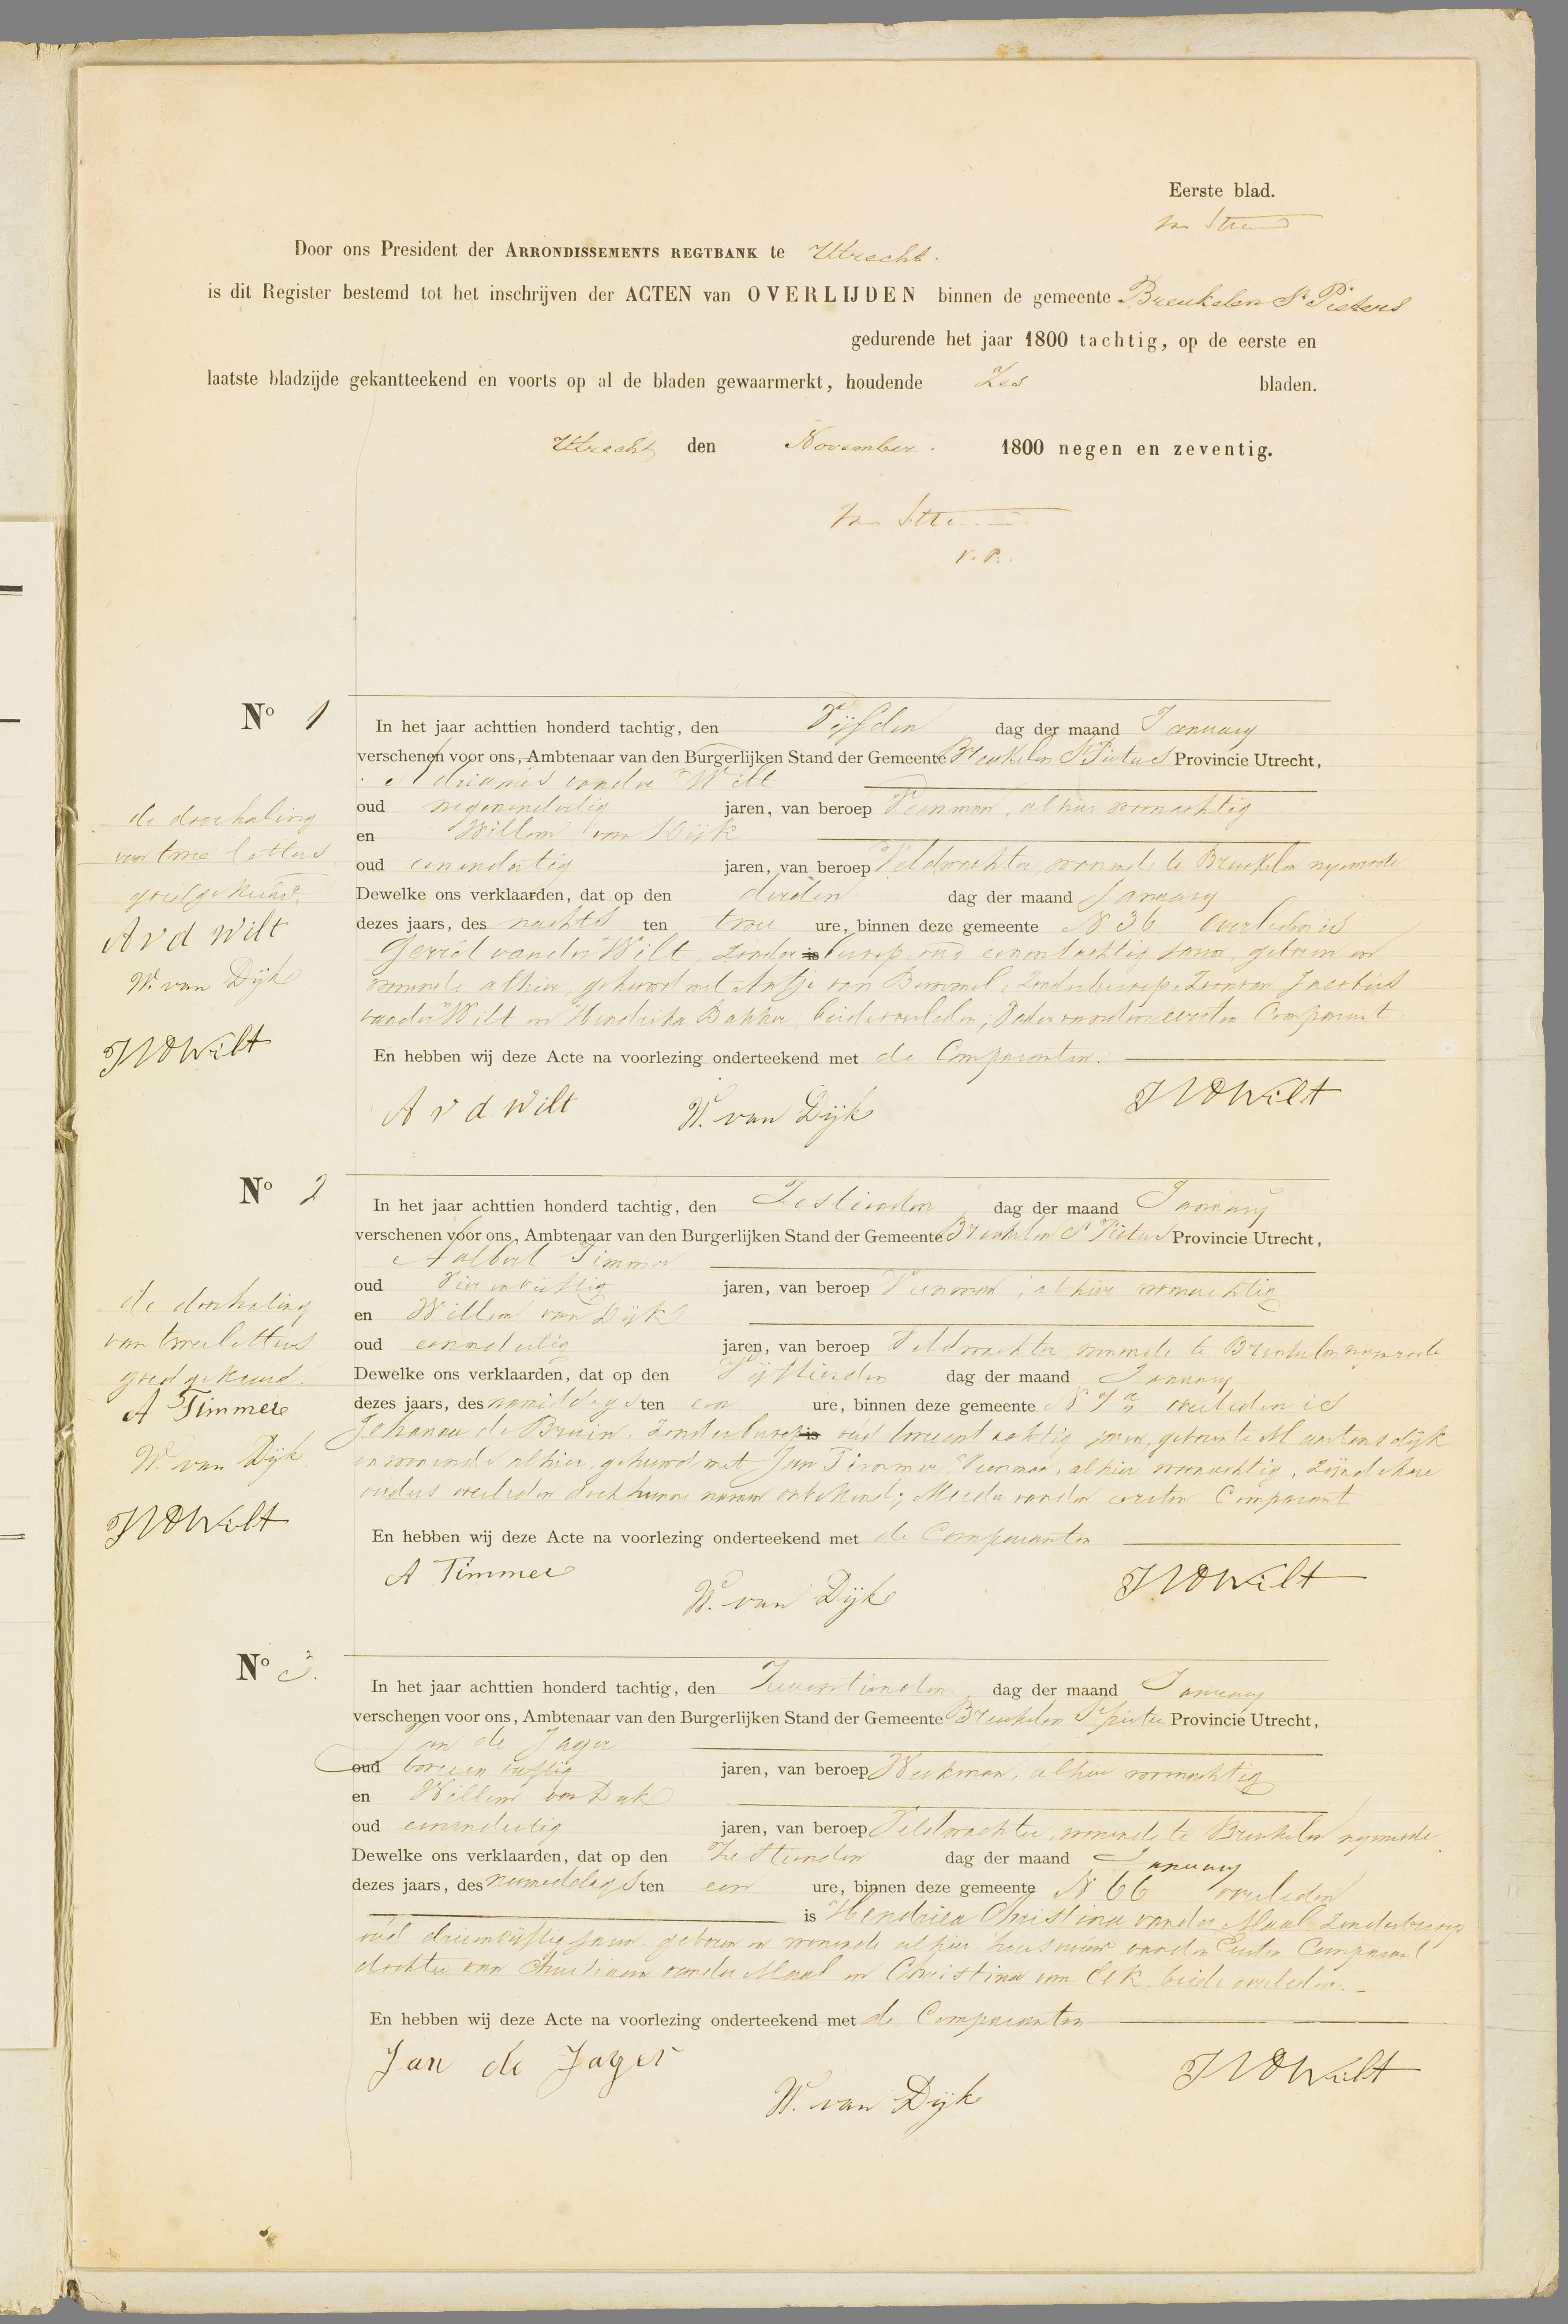 Eerste blad.
Door ons President der ARRONDISSEMENTS REGTBANK te Utrecht.
is dit Register bestemd tot het inschrijven der ACTEN van OVERLIJDEN binnen de gemeente Breukelen St Pieters
gedurende het jaar 1800 tachtig, op de eerste en
laatste bladzijde gekantteekend en voorts op al de bladen gewaarmerkt, houdende Zes bladen.
Utrecht den November. 1800 negen en zeventig.
V. P.
No 1
In het jaar achttien honderd tachtig, den Vijfden dag der maand January
verschenen voor ons, Ambtenaar van den Burgerlijken Stand der Gemeente Breukelen St Pieters Provincie Utrecht,
Adrianus vander Wilt
oud negenendertig jaren, van beroep Veenman, alhier woonachtig
en Willem van Dijk
oud eenendertig jaren, van beroep Veldwachter, wonende te Breukelen nyenrode
Dewelke ons verklaarden, dat op den derden dag der maand January
dezes jaars, des nachts ten twee ure, binnen deze gemeente N 36 overleden is
Gerrit vander Wilt, zonder is beroep oud eenentachtig jaren, geboren en
wonende alhier, gehuwd met Antje van Bemmel, Zonder beroep, Zoon van Jacobus
vander Wilt en Hendrika Bakker, beide overleden; Vader vanden eersten Comparant
En hebben wij deze Acte na voorlezing onderteekend met de Comparanten.
A v d Wilt W. van Dijk JVDWilt
de doorhaling
van twee letters
goedgekeurd.
A v d Wilt
W. van Dijk
JVDWilt
No 2
In het jaar achttien honderd tachtig, den Zestienden dag der maand January
verschenen voor ons, Ambtenaar van den Burgerlijken Stand der Gemeente Breukelen St Pieters Provincie Utrecht,
Aalbert Timmer
oud Vierenvijftig jaren, van beroep Veenman, alhier woonachtig
en Willem van Dijk
oud eenendertig jaren, van beroep Veldwachter, wonende te Breukelen nyenrode
Dewelke ons verklaarden, dat op den Vijftienden dag der maand January
dezes jaars, des namiddags ten een ure, binnen deze gemeente N 7 overleden is
Johanna de Bruin, Zonder beroep is oud tweeentachtig jaren, geboren te Maartensdijk
en wonende alhier, gehuwd met Jan Timmer, Veenman, alhier woonachtig, zijnde hare
ouders overleden doch hunne namen onbekend; Moeder vanden eersten Comparant
En hebben wij deze Acte na voorlezing onderteekend met de Comparanten
A Timmer W. van Dijk JVDWilt
de doorhaling
van twee letters
goedgekeurd.
A Timmer
W. van Dijk
JVDWilt
No 3.
In het jaar achttien honderd tachtig, den Zeventienden dag der maand January
verschenen voor ons, Ambtenaar van den Burgerlijken Stand der Gemeente Breukelen St Pieters Provincie Utrecht,
Jan de Jager
oud tweeenvijftig jaren, van beroep Werkman, alhier woonachtig
en Willem van Dijk
oud eenendertig jaren, van beroep Veldwachter, wonende te Breukelen nyenrode
Dewelke ons verklaarden, dat op den Zestienden dag der maand January
dezes jaars, des namiddags ten een ure, binnen deze gemeente N 66 overleden
is Hendrica Christina vander Maal Zonder beroep
oud drieenvijftig jaren, geboren en wonende alhier huisvrouw vanden Eersten Comparant
dochter van Christiaan vander Maal en Christina van Eck, beide overleden.
En hebben wij deze Acte na voorlezing onderteekend met de Comparanten
Jan de Jager W. van Dijk JVDWilt